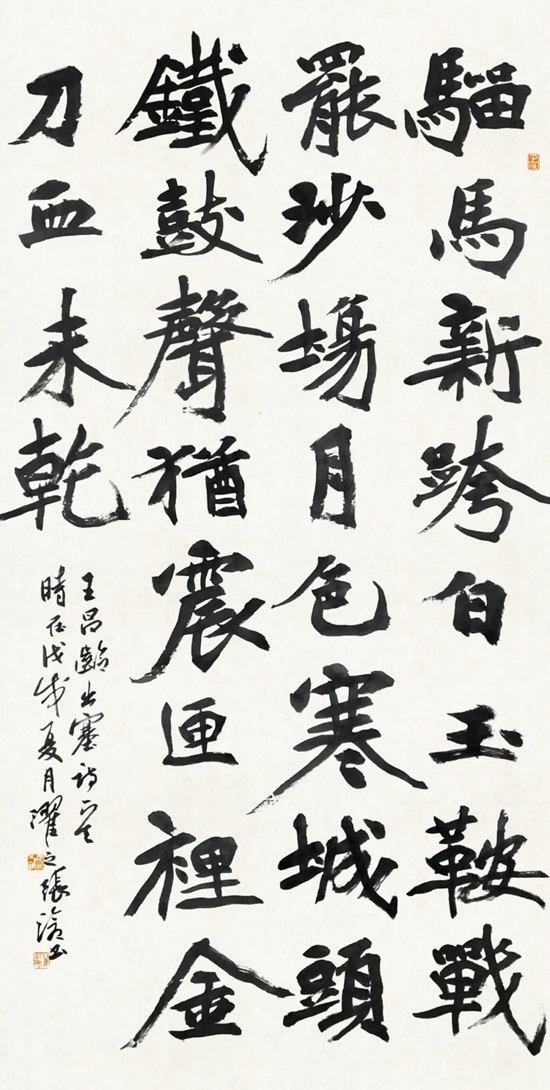 騮馬新跨白玉鞍戰
罷沙場月色寒城頭
鐵鼓聲猶震匣裡金
刀血未乾
王昌齡出塞詩一首
時在戊戌夏月濯之張書